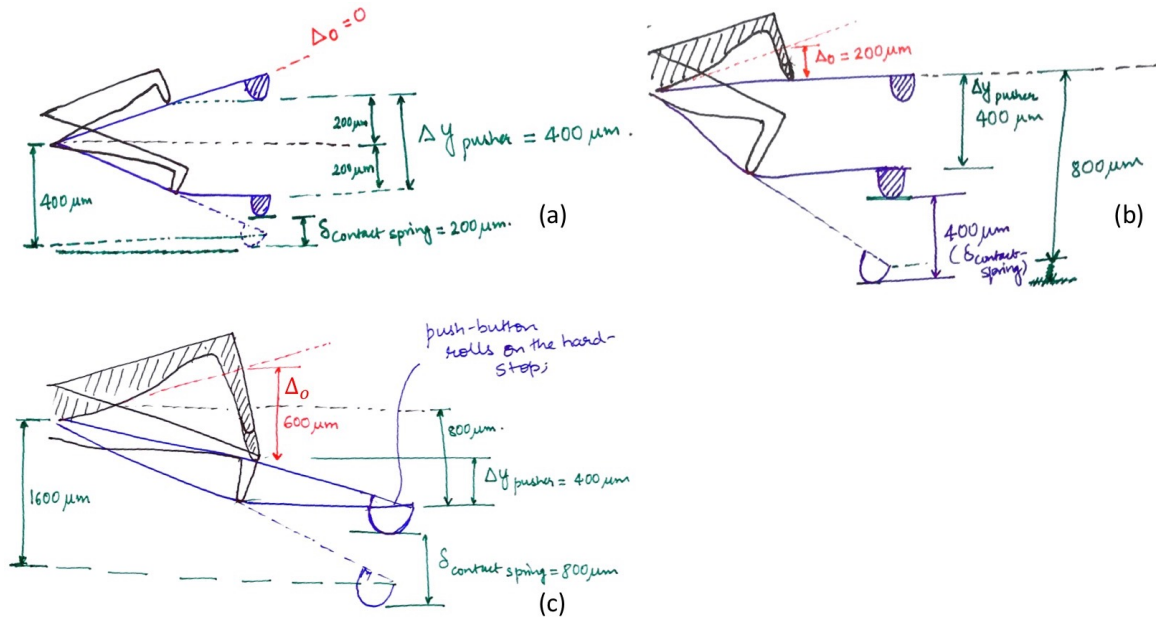 Δo = 0
200μm
200μm
Δy pusher = 400 μm.
400μm
δcontact spring = 200μm.
(a)
Δo = 200μm
Δy pusher
400 μm
800μm
400μm
(δcontact-
spring)
(b)
push-button
rolls on the hard-
stop;
Δo
600μm
800μm.
Δy pusher = 400μm
1600μm
δcontact spring = 800μm
(c)